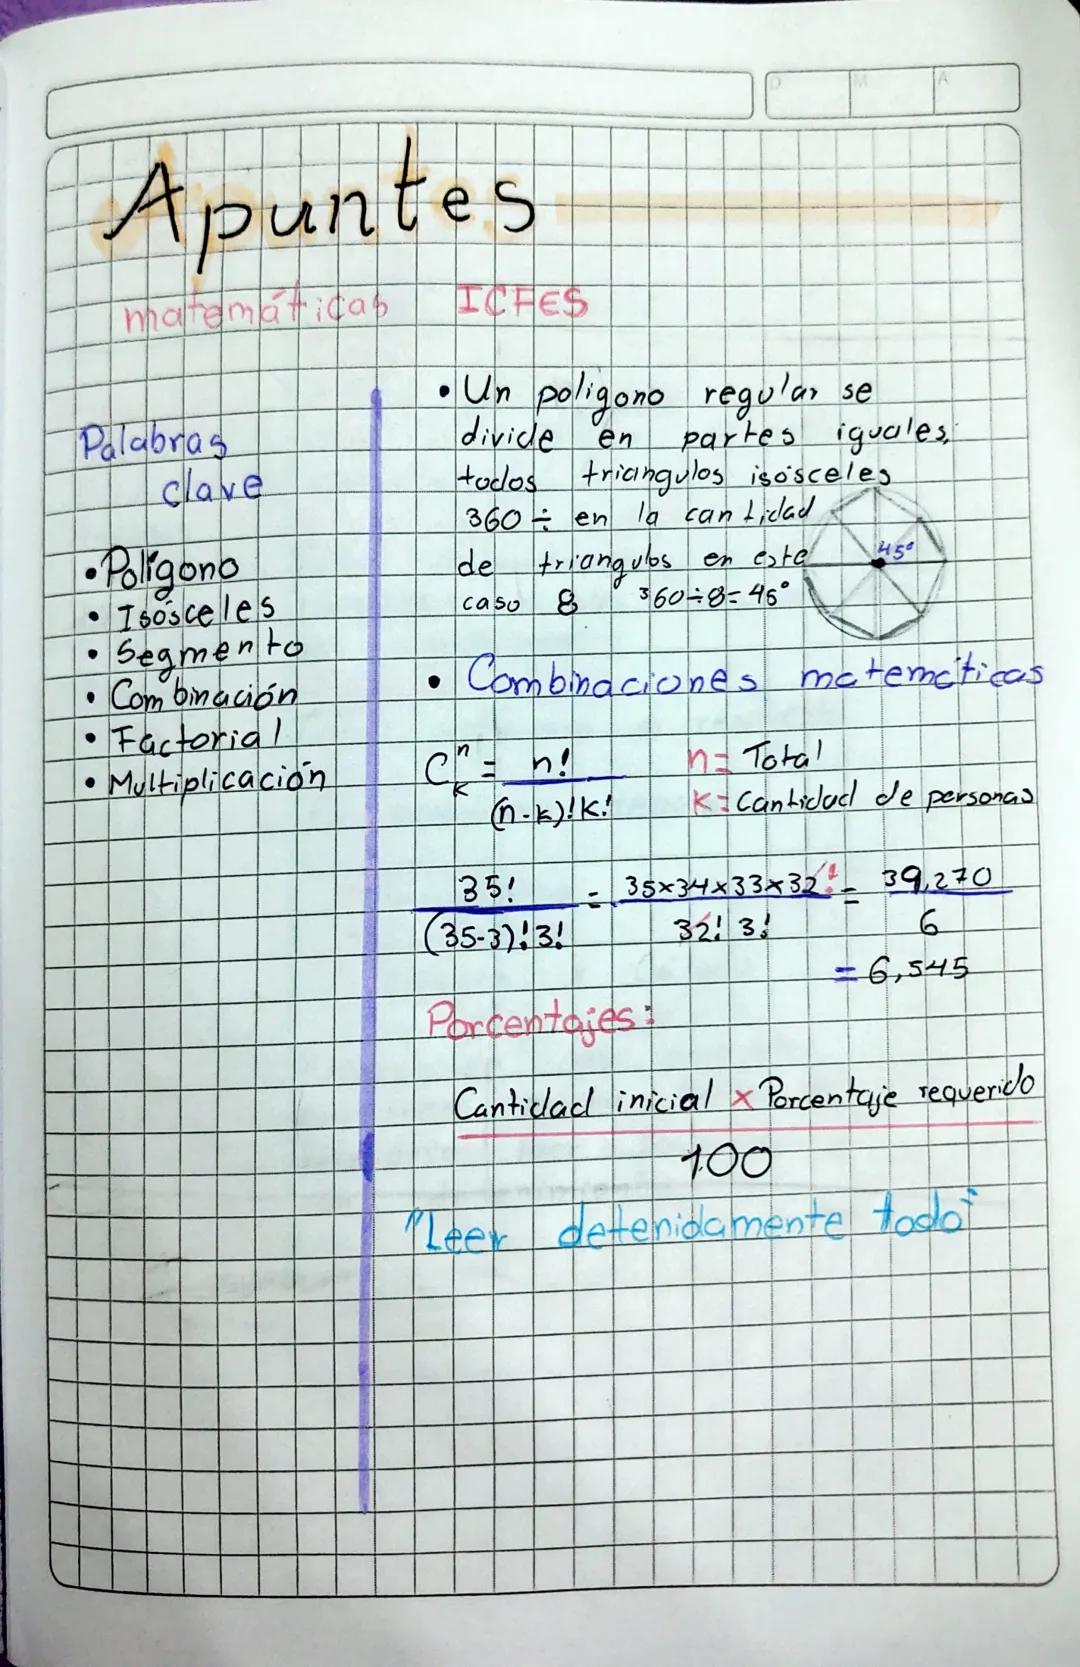 D M A
Apuntes
matemáticas ICFES
Palabras
clave
• Polígono
• Isósceles
• Segmento
• Combinación
• Factorial
• Multiplicación
• Un poligono regular se
divide en partes iguales,
todos triangulos isósceles
360 ÷ en la cantidad
de triangulos en este
caso 8 360÷8=45°
45°
• Combinaciones matemáticas
C n k = n! n = Total
(n-k)!k! k = Cantidad de personas
35! = 35×34×33×32! = 39,270
(35-3)!3! 32! 3! 6
= 6,545
Porcentajes:
Cantidad inicial × Porcentaje requerido
100
"Leer detenidamente todo"